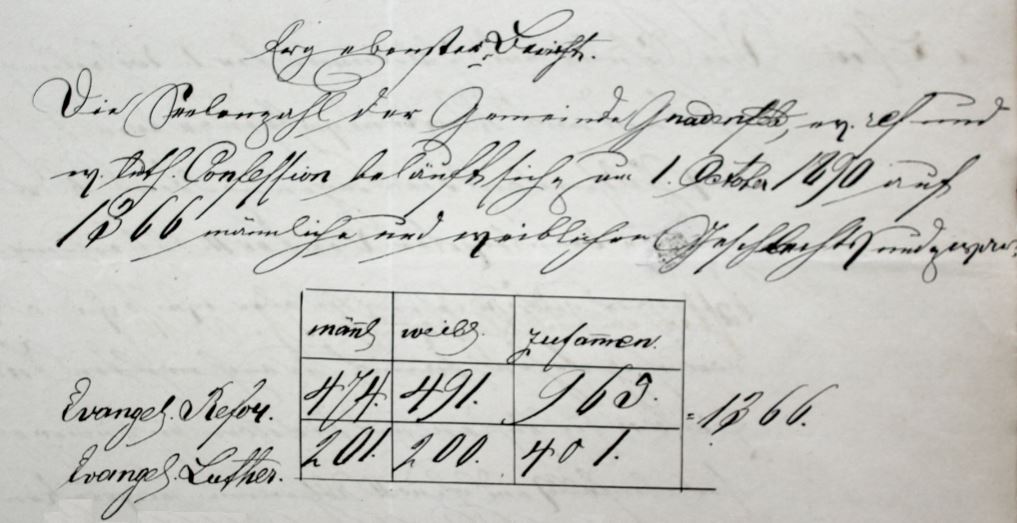 Ergebenster Bericht.
Die Seelenzahl der Gemeinde Gnadenthal, ev. ref und
ev. luth. Confession beläuft sich am 1. October 1890 auf
1366 männliche und weiblichen Geschlechts und zwar:
männl weibl. zusam̄en.
Evangel. Refor. 474. 491. 965. = 1366.
Evangel. Luther. 201. 200. 401.